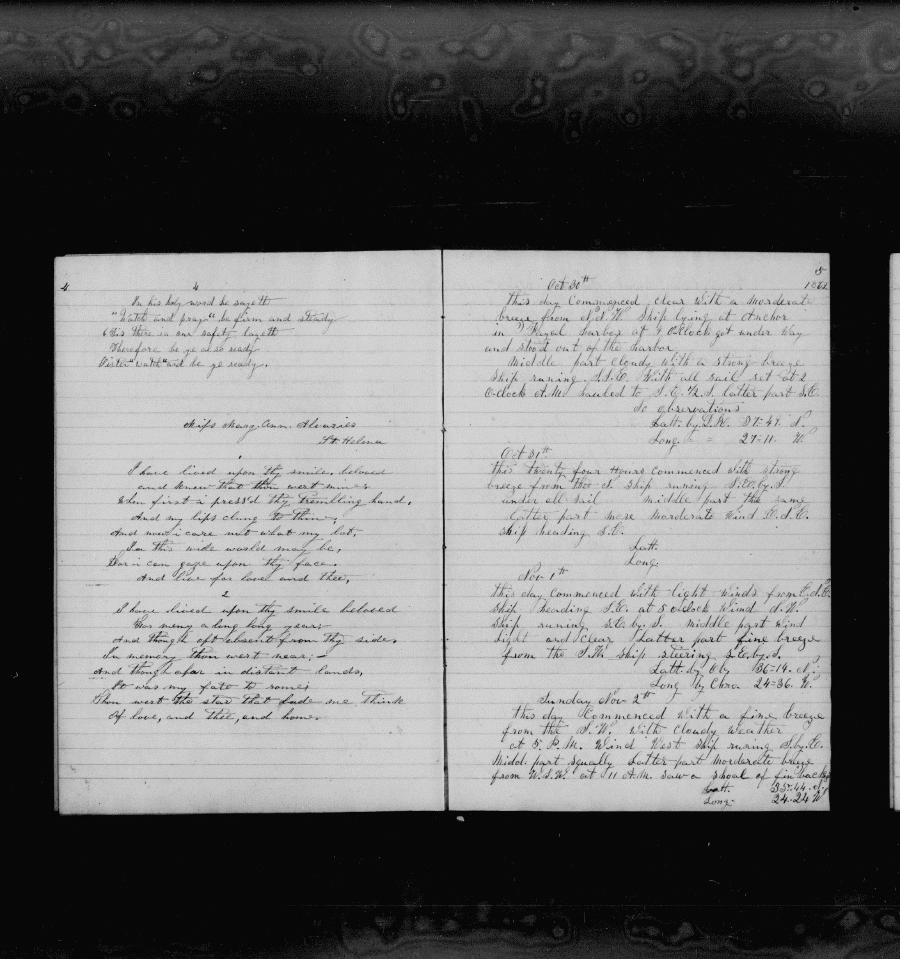 4
4
In his holy word he sayeth
"Watch and pray" be firm and steady
Tis there in our safety layeth
Therefore be ye also ready
Sister "watch" and be ye ready.
Ships Mary Ann. Alvazies
St. Helena
1
I have lived upon thy smile, beloved
and knew that thou wert mine
When first i press'd thy trembling hand,
And my lips clung to thine,
And now i care not what my lot,
In this wide would may be,
For i can gaze upon thy face
And live for love and thee,
2
I have lived upon thy smile beloved
For meny a long long year,
And though oft absent from thy side,
In memory thou wert near,
And though afar in distant lands,
It was my fate to rome,
Thou wert the star that bade me think
Of love, and thee, and home.
5
Oct 30th 1862
This day Commenced clear With a morderate
breeze from N.N.W. Ship lying at Anchor
in Fayal harbor at 9 Oclock got under Way
and stood out of the harbor
Middle part Cloudy With a strong breeze
Ship runing S.S.E. With all sail set at 2
Oclock A.M. hauled to S.E. 1/2 S. latter part S.E.
No observations
Latt. by D.R. 37-47. N.
Long. " = 27-11. W
Oct 31th
this twenty four Hours commenced with strong
breeze from the N. Ship runing S.E. by S.
under all sail middle part the same
latter part more morderate Wind E.N.E.
Ship heading S.E.
Latt.
Long.
Nov. 1th
this day Commenced With light Winds from E.N.E.
Ship heading S.E. at 5 oclock Wind N.W.
Ship runing S.E. by S. middle part Wind
light and Clear Latter part fine breeze
from the S.W. Ship steering S.E. by S.
Latt. by Ob 36-14. N.
Long by Chro. 24=36. W.
Sunday Nov 2th
this day Commenced With a fine breeze
from the S.W. With cloudy Weather
at 5. P.M. Wind West Ship runing S. by E.
Midd. part squally Latter part morderate breeze
from W.S.W. at 11 A.M. saw a shoal of finbacks
Latt. 35-44. N.
Long- 24-24 W